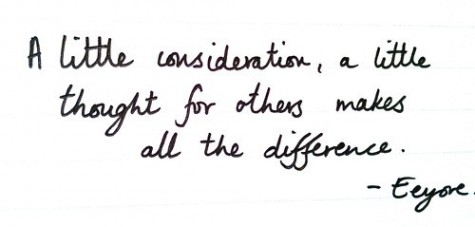 A little consideration, a little
thought for others makes
all the difference.
- Eeyore.